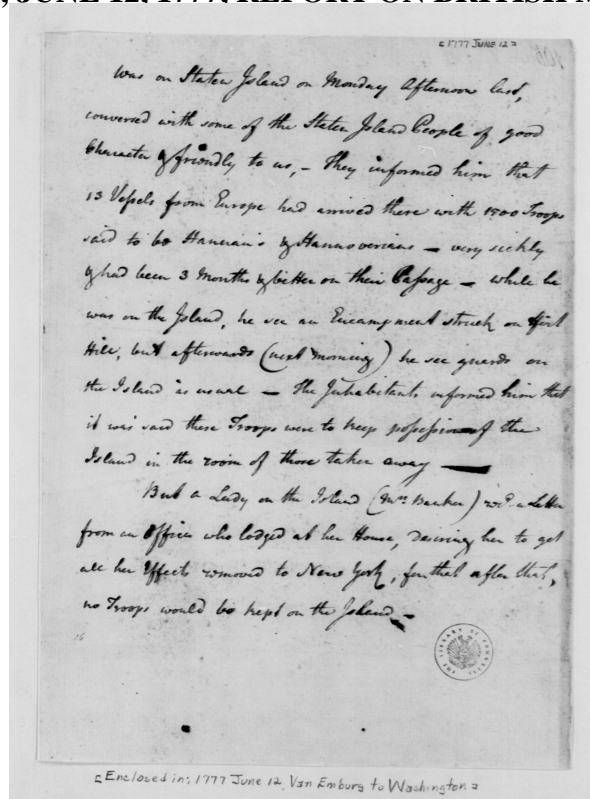 , JUNE 12, 1777, REPORT ON BRITISH M
[1777 JUNE 12]
was on Staten Island on Monday Afternoon last,
conversed with some of the Staten Island People of good
Character & friendly to us, – They informed him that
13 Vessels from Europe had arrived there with 1500 Troops
said to be Hannau's & Hannoverians – very sickly
& had been 3 Months & better on their Passage – while he
was on the Island, he see an Encampment struck on
Hill, but afterwards (next morning) he see guards on
the Island as usual – The Inhabitants informed him that
it was said these Troops were to keep possession of the
Island in the room of those taken away —
But a Lady on the Island (Mrs Banker) recd a Letter
from an Officer who lodged at her House, desiring her to get
all her Effects removed to New York, for that after that,
no Troops would be kept on the Island –
THE LIBRARY OF CONGRESS
[Enclosed in: 1777 June 12, Van Emburg to Washington]